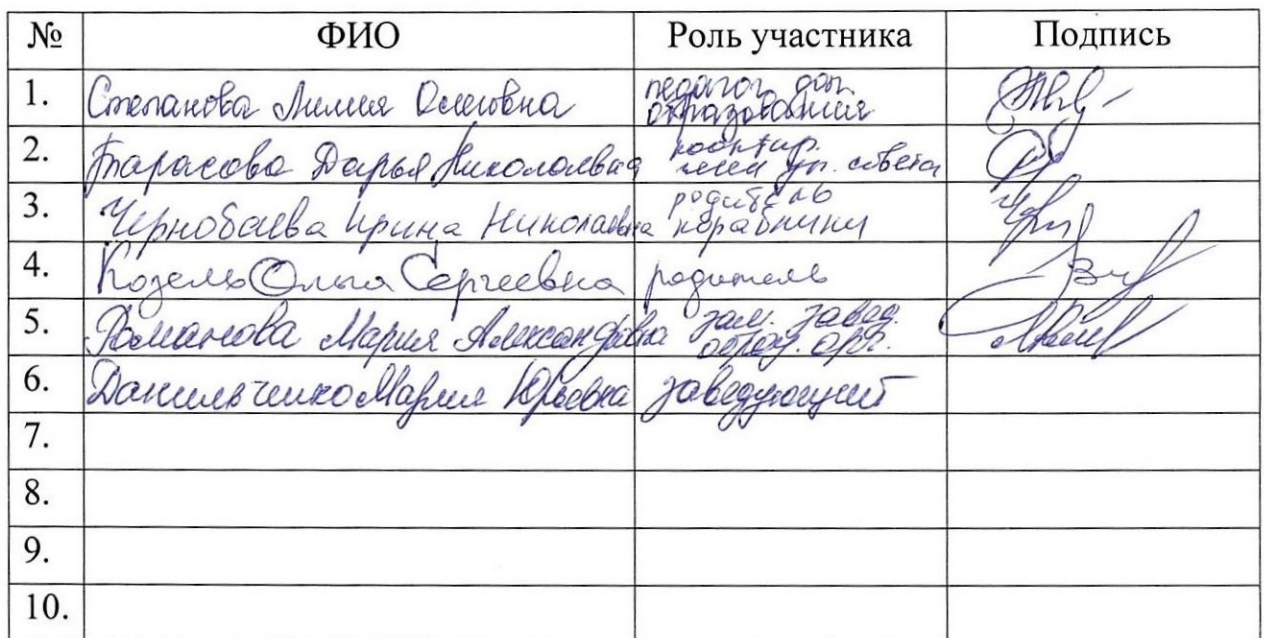 № ФИО Роль участника Подпись
1. Степанова Лилия Олеговна педагог доп.
образования
2. Тарасова Дарья Николаевна
член уп. совета
3. Чернобаева Ирина Николаевна родитель
4. Козель Ольга Сергеевна родитель
5. Романова Мария Александровна зам. завед.
образ. орг.
6. Данильченко Мария Юрьевна заведующий
7.
8.
9.
10.